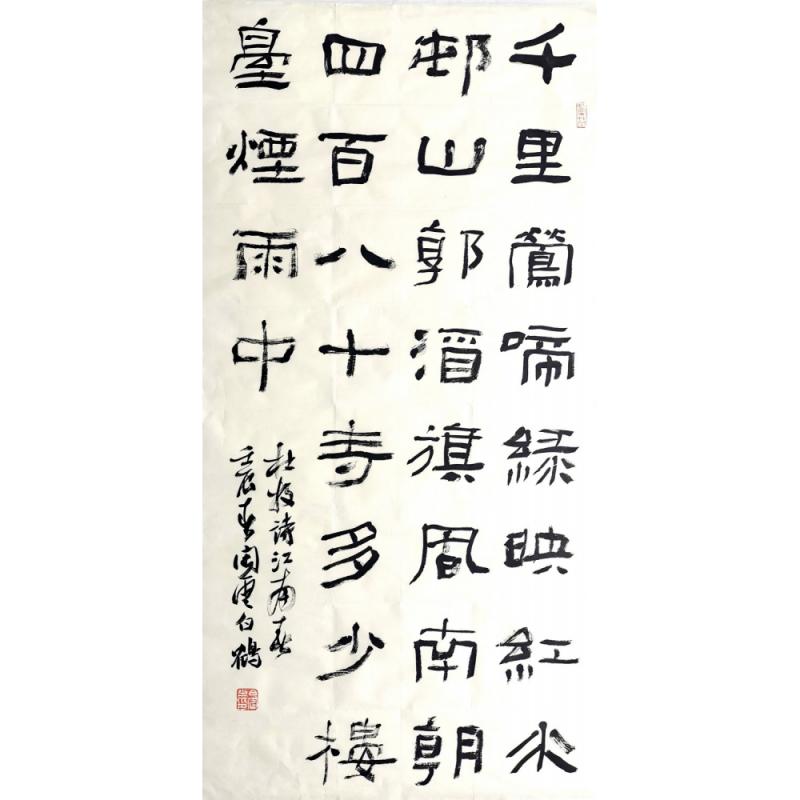 千里鶯啼緑映紅水
邨山郭酒旗風南朝
四百八十寺多少樓
臺煙雨中
杜牧詩江南春
壬辰春雲白鶴